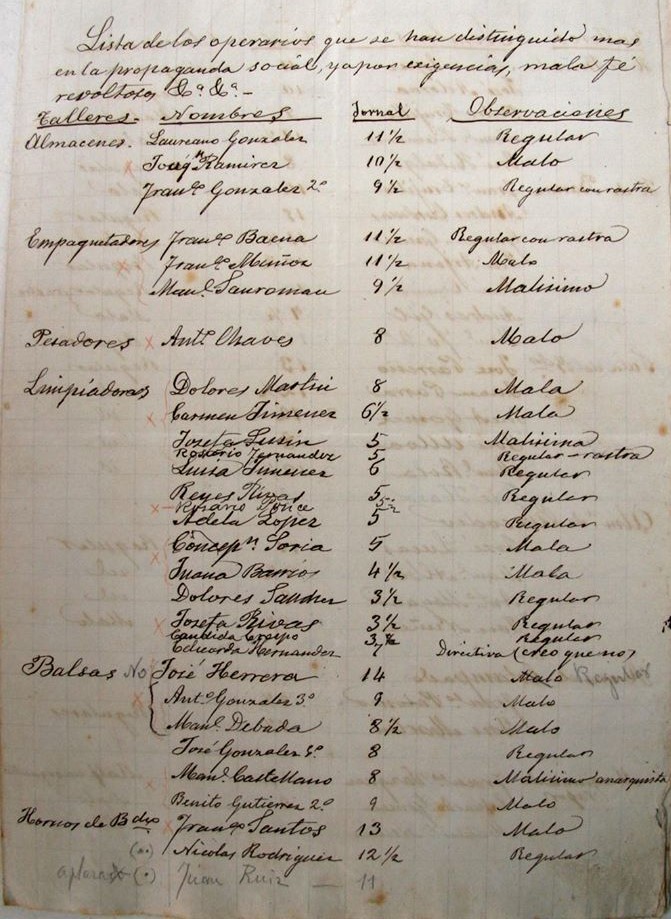 Lista de los operarios que se han distinguido mas
en la propaganda social, ya por exigencias, mala fé
revoltosos &ª &ª.-
Talleres. Nombres Jornal Observaciones
Almacenes. Laureano Gonzalez 11 1/2 Regular
Joaqn Ramirez 10 1/2 Malo
Franco Gonzalez 2º 9 1/2 Regular con rastra
Empaquetadores Franco Baena 11 1/2 Regular con rastra
Franco Muñoz 11 1/2 Malo
Manl. 9 1/2 Malisimo
Pesadores × Anto Chaves 8 Malo
Limpiadoras Dolores Martin 8 Mala
× Carmen Jimenez 6 1/2 Mala
Josefa 5 Malisima
Rosario Fernandez 5 Regular - rastra
Luisa Jimenez 6 Regular
Reyes Rivas 5 Regular
×- Rosario Ponce 5
Adela Lopez 5 Regular
Concepn Soria 5 Mala
Juana Barrios 4 1/2 Mala
Dolores Sanchez 3 1/2 Regular
× Josefa Rivas 3 1/2 Regular
Candida Crespo 3 1/2 Regular
Eduarda Hernandez Directiva (creo que no)
Balsas No José Herrera 14 Malo Regular
Anto Gonzalez 3º 9 Malo
Manl. Debada 8 1/2 Malo
José Gonzalez 8 Regular
× Manl. Castellano 8 Malisimo anarquista
Benito Gutierrez 2º 9 Malo
Hornos de × Franco Santos 13 Malo
Nicolas Rodriguez 12 1/2 Regular
Juan Ruiz — 11